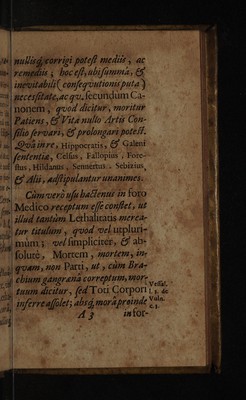 nullisq; corrigi potest mediis, ac
remediis; hoc est, ubi summâ, &
inevitabili (conseqvutionis puta)
necessitate, ac qv. secundum Ca-
nonem, qvod dicitur, moritur
Patiens, & Vita nullo Artis Con-
silio servari, & prolongari potest.
Qvâ in re, Hippocratis, & Galeni
sententiæ, Celsus, Fallopius, Fore-
stus, Hildanus, Sennertus, Sebizius,
& Alii, adstipulantur unanimes.
Cùm verò usu hactenus in foro
Medico receptum esse constet, ut
illud tantùm Lethalitatis merea-
tur titulum, qvod vel utpluri-
mum; vel simpliciter, & ab-
solutè, Mortem, mortem, in-
qvam, non Parti, ut, cùm Bra-
chium gangrænâ correptum, mor-
tuum dicitur, sed Toti Corpori
inferre assolet; absq; morâ proinde
Vesal.
l. 5. de
Vuln.
c. 3.
A 3
infor-